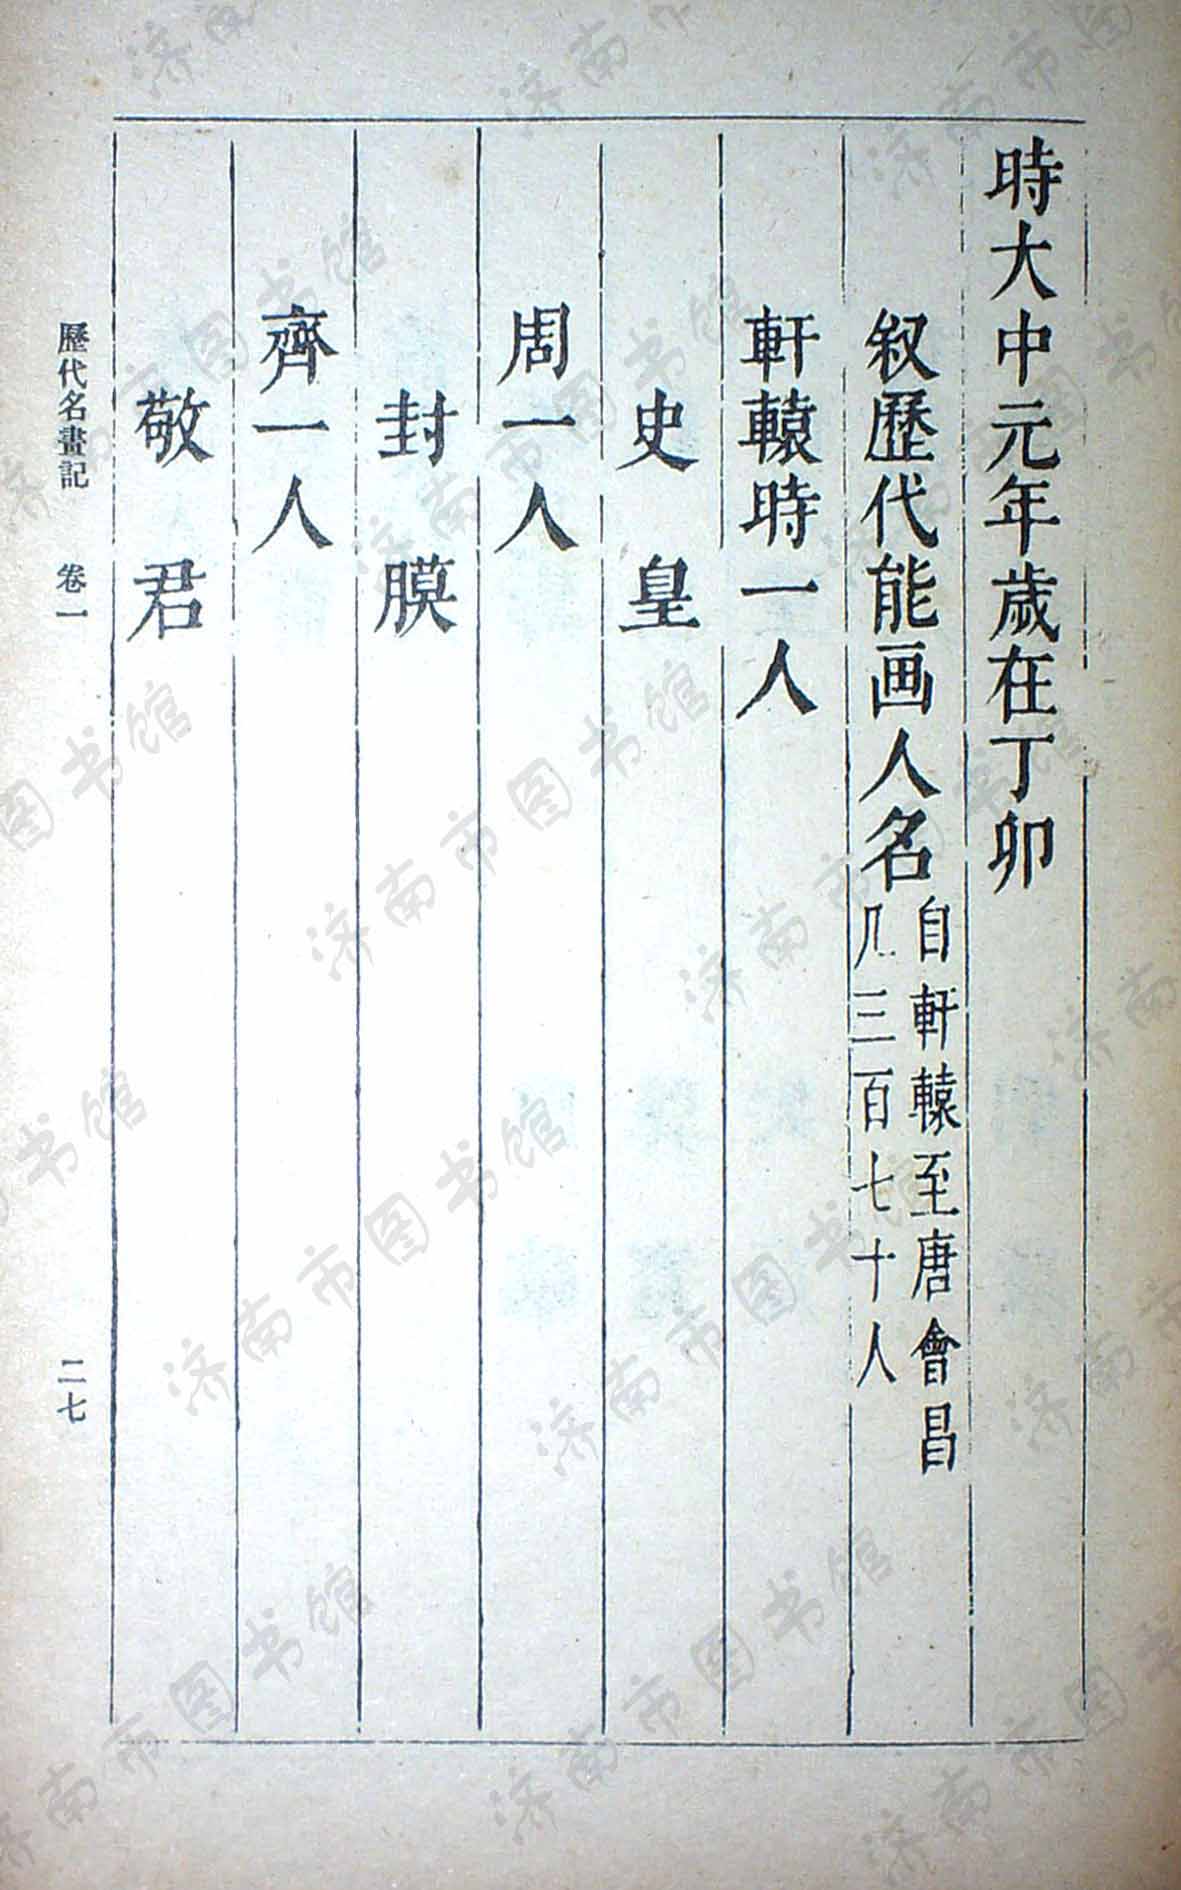 時大中元年歲在丁卯
叙歷代能画人名
自軒轅至唐會昌
凡三百七十人
軒轅時一人
史皇
周一人
封膜
齊一人
敬君
歷代名畫記 卷一 二七
济南市图书馆